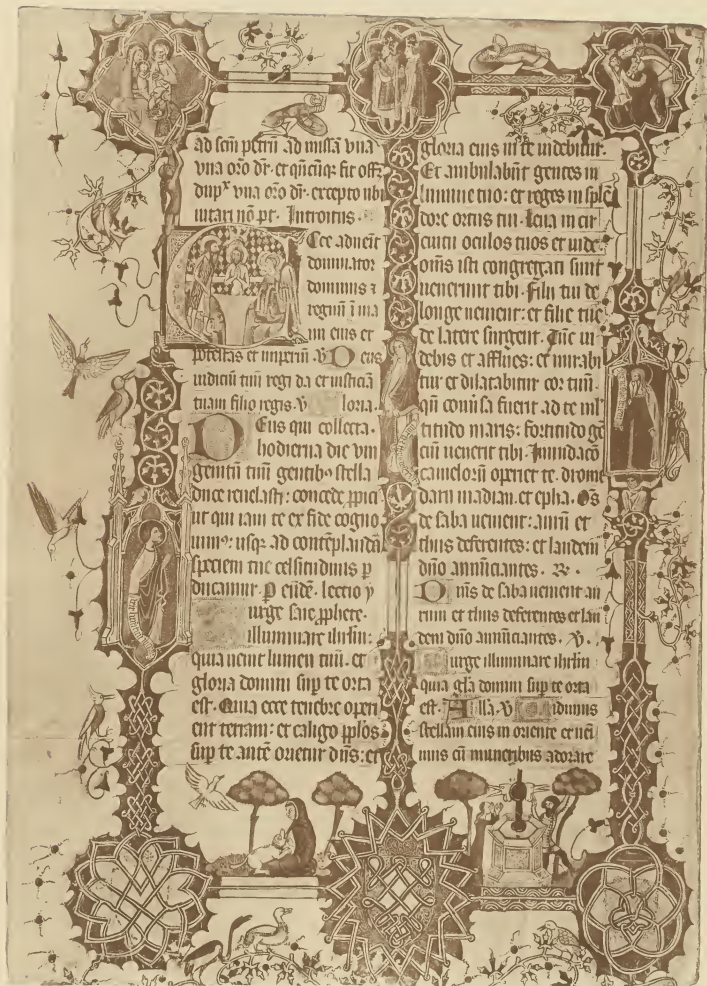 ad scm petrū ad missā vna
vna oro dr. et qñcūqꝫ fit offꝫ
dupˣ vna oro dr. excepto ubi
mutari nō pt. Introitus.
Ecce aduenit
dominator
dominus ⁊
regnū ī ma
nu eius et
potestas et imperiū. v̄ Deus
iudiciū tuū regi da et iusticiā
tuam filio regis. v̄ loria.
Deus qui
hodierna die vni
genitū tuū gentibꝰ stella
duce reuelasti: concede ꝓpici
ut qui iam te ex fide cogno
uimꝰ: usqꝫ ad contēplandā
speciem tue celsitudinis p
ducamur. P eūdē. lectio y
urge saie ꝓphete.
illuminare ihrlm:
quia uenit lumen tuū. et
gloria domini sup te orta
est. Quia ecce tenebre operi
ent terram: et caligo pplos
sup te autē orietur dñs: et
gloria eius in te uidebitur.
Et ambulabūt gentes in
lumine tuo: et reges in splē
dore ortus tui. Leua in cir
cuitu oculos tuos et uide
omīs isti congregati sunt
uenerunt tibi. Filii tui de
longe uenient: et filie tue
de latere surgent. Tūc ui
debis et afflues: et mirabi
tur et dilatabitur cor tuū.
qñ conuersa fuerit ad te ml
titudo maris: fortitudo gē
ciū uenerit tibi. Inundacō
camelorū operiet te. drome
darii madian. et epha. Oēs
de saba uenient: aurū et
thus deferentes: et laudem
dño annūciantes. R.
Omīs de saba uenient au
rum et thus deferentes et lau
dem dño annūciantes. v̄.
urge illuminare ihrlm
quia gla domini sup te orta
est. Alla. v̄ idimus
stellam eius in oriente et ue
nimus cū muneribus adorare